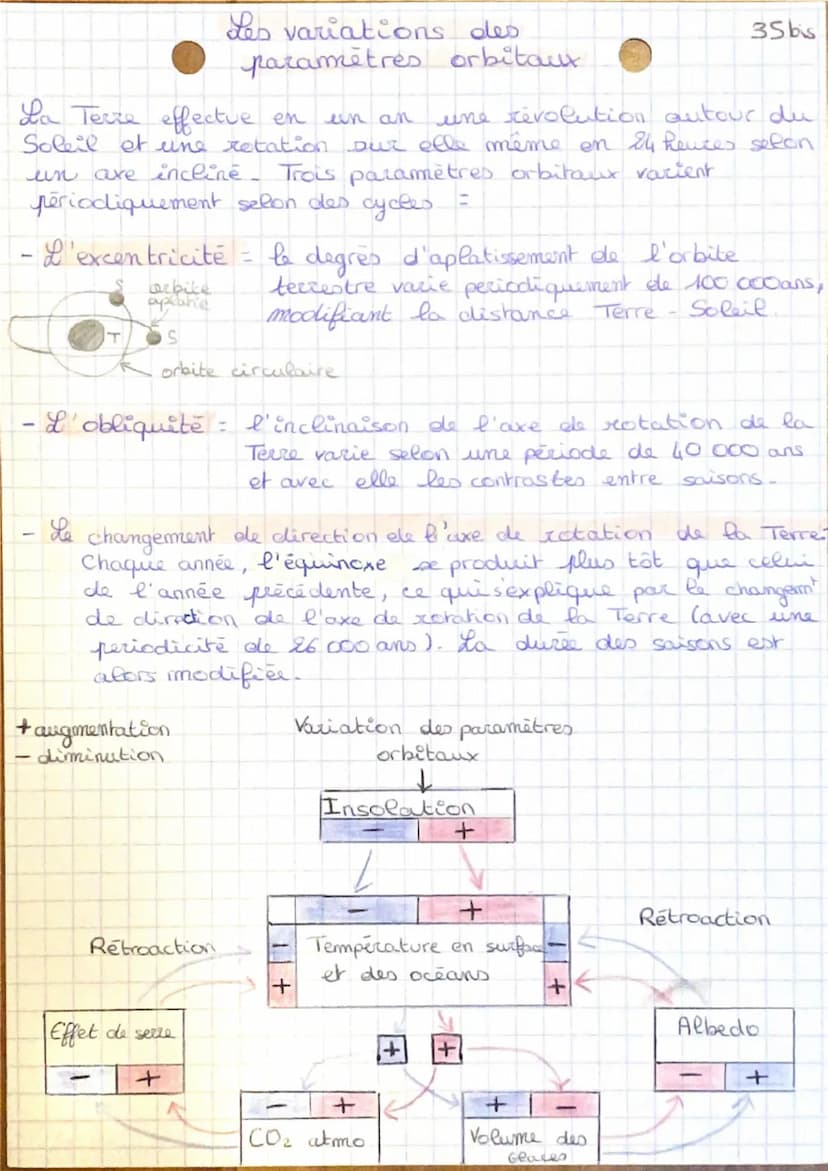 Les variations des
paramètres orbitaux
35bis
La Terre effectue en un an une révolution autour du
Soleil et une rotation sur elle même en 24 heures selon
un axe incliné. Trois paramètres orbitaux varient
périodiquement selon des cycles =
- L'excentricité = le degrès d'aplatissement de l'orbite
terrestre varie periodiquement de 100 000ans,
modifiant la distance Terre - Soleil.
S
orbite
aplatie
T
S
orbite circulaire
- L'obliquité = l'inclinaison de l'axe de rotation de la
Terre varie selon une période de 40 000 ans
et avec elle les contrastes entre saisons.
- Le changement de direction de l'axe de rotation de la Terre=
Chaque année, l'équinoxe se produit plus tôt que celui
de l'année précédente, ce qui s'explique par le changemt
de direction de l'axe de rotation de la Terre (avec une
periodicité de 26 000 ans). La durée des saisons est
alors modifiée.
+ augmentation
- diminution
Variation des paramètres
orbitaux
Insolation
- +
- +
Rétroaction
Rétroaction
- Température en surface -
+ et des océans +
Effet de serre
- +
+ +
Albedo
- +
- +
CO2 atmo
+ -
Volume des
glaces